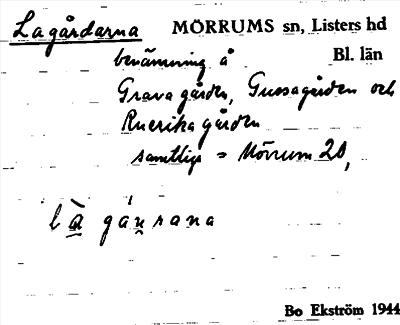 Lagårdarna MÖRRUMS sn, Listers hd
Bl. län
benämning å
Gravagården, Gussagården och
Ruerikagården
samtliga = Mörrum 20,
Bo Ekström 1944